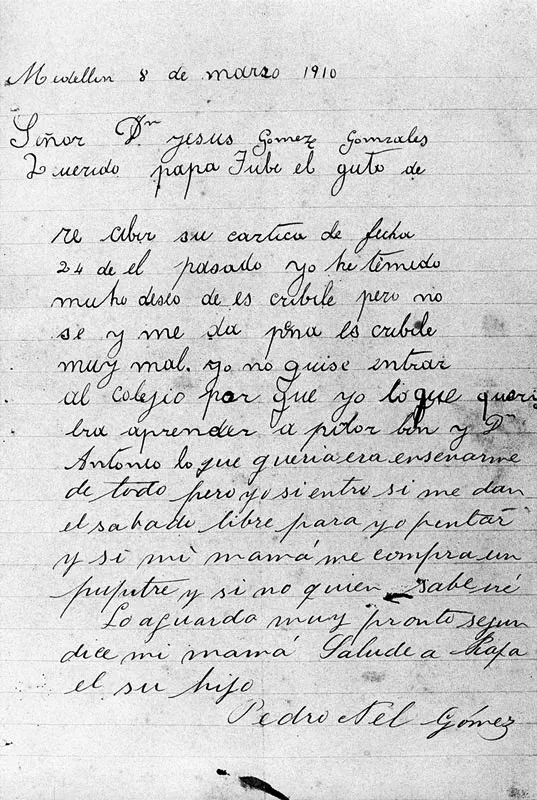 Medellin 8 de marzo 1910
Señor Dn. yesus Gomez Gomzales
Querido papa Tube el guto de
re cibir su cartica de fecha
24 de el pasado yo he temido
muho deseo de es cribile pero no
se y me da pena es cribile
muy mal. yo no quise entrar
al colejio por que yo lo que queri
era aprender a pitor bin y Dn
Antonio lo que queria era enseñarme
de todo pero yo si entro si me dan
el sabado libre para yo pentar
y si mi mamá me compra un
puputre y si no quien sabe iré
Lo aguardo muy pronto segun
dice mi mamá Salude a Rafa
el su hijo
Pedro Nel Gómez